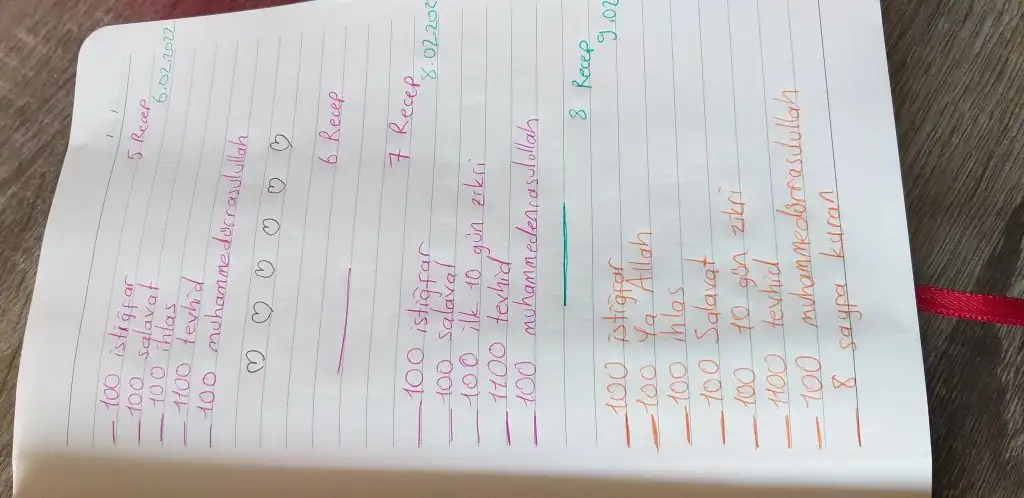 5 Recep
6.02.2022
100 istiğfar
100 salavat
100 ihlas
1100 tevhid
100 muhammedürrasulullah
6 Recep
7 Recep
8.02.202
100 istiğfar
100 salavat
100 ilk 10 gün zikri
1100 tevhid
100 muhammedenrasulullah
8 Recep
9.02
100 istiğfar
100 Ya Allah
100 ihlas
100 Salavat
100 10 gün zikri
1100 tevhid
100 muhammedürrasulullah
8 sayfa kuran